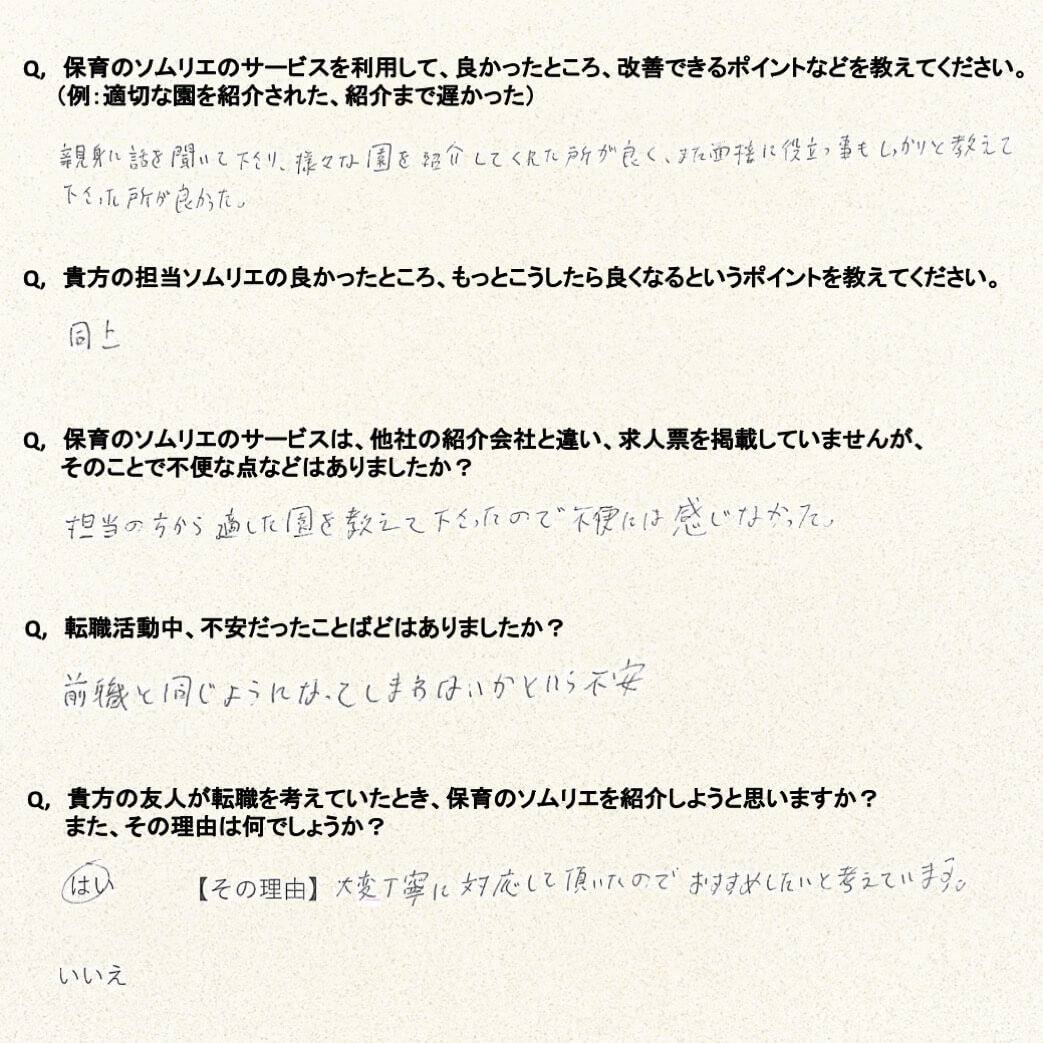 Q, 保育のソムリエのサービスを利用して、良かったところ、改善できるポイントなどを教えてください。
（例：適切な園を紹介された、紹介まで遅かった）
親身に話を聞いて下さり、様々な園を紹介してくれた所が良く、また面接に役立つ事もしっかりと教えて
下さった所が良かった。
Q, 貴方の担当ソムリエの良かったところ、もっとこうしたら良くなるというポイントを教えてください。
同上
Q, 保育のソムリエのサービスは、他社の紹介会社と違い、求人票を掲載していませんが、
そのことで不便な点などはありましたか？
担当の方から適した園を教えて下さったので不便には感じなかった。
Q, 転職活動中、不安だったことばどはありましたか？
前職と同じようになってしまわないかという不安
Q, 貴方の友人が転職を考えていたとき、保育のソムリエを紹介しようと思いますか？
また、その理由は何でしょうか？
はい 【その理由】 大変丁寧に対応して頂いたのでおすすめしたいと考えています。
いいえ